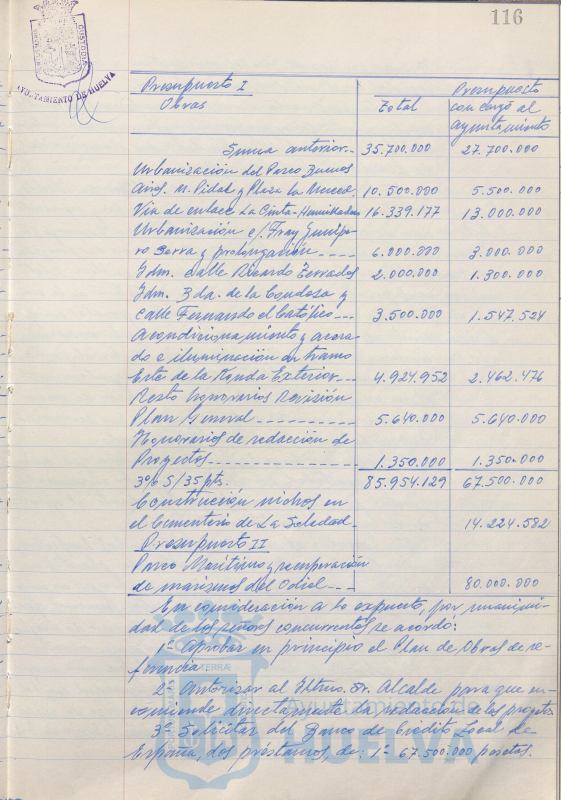 116
AYUNTAMIENTO DE HUELVA
Presupuesto I Presupuesto
Obras Total con cargo al
Ayuntamiento
Suma anterior-- 35.700.000 27.700.000
Urbanización del Parco Buenos
Aires. M. Pidal y Plaza la Merced. 10.500.000 5.500.000
Via de enlace La Cinta-Humilladero 16.339.177 13.000.000
Urbanización c/. Fray Junipe-
ro Serra y prolongación---- 6.000.000 3.000.000
Idm. Calle Ricardo Terrades 2.000.000 1.300.000
Idm. Bda. de la Condesa y
calle Fernando el Católico--- 3.500.000 1.547.524
Acondicionamiento y acera-
do e iluminación en tramo
Este de la Ronda Exterior-- 4.924.952 2.462.476
Resto honorarios Revisión
Plan General---------- 5.640.000 5.640.000
Honorarios de redacción de
Proyectos-------------- 1.350.000 1.350.000
3% S/35 pts. 85.954.129 67.500.000
Construcción nichos en
el Cementerio de La Soledad- 14.224.582
Presupuesto II
Parco Marítimo y recuperación
de marismas del Odiel--- 80.000.000
En consideración a lo expuesto, por unanimi-
dad de los señores concurrentes se acordó:
1º Aprobar en principio el Plan de Obras de re-
ferencia.
2º Autorizar al Iltmo. Sr. Alcalde para que en-
comiende directamente la redacción de los proyectos
3º Solicitar del Banco de Crédito Local de
España, dos préstamos de: 1º 67.500.000 pesetas.
Ayuntamiento de
HUELVA